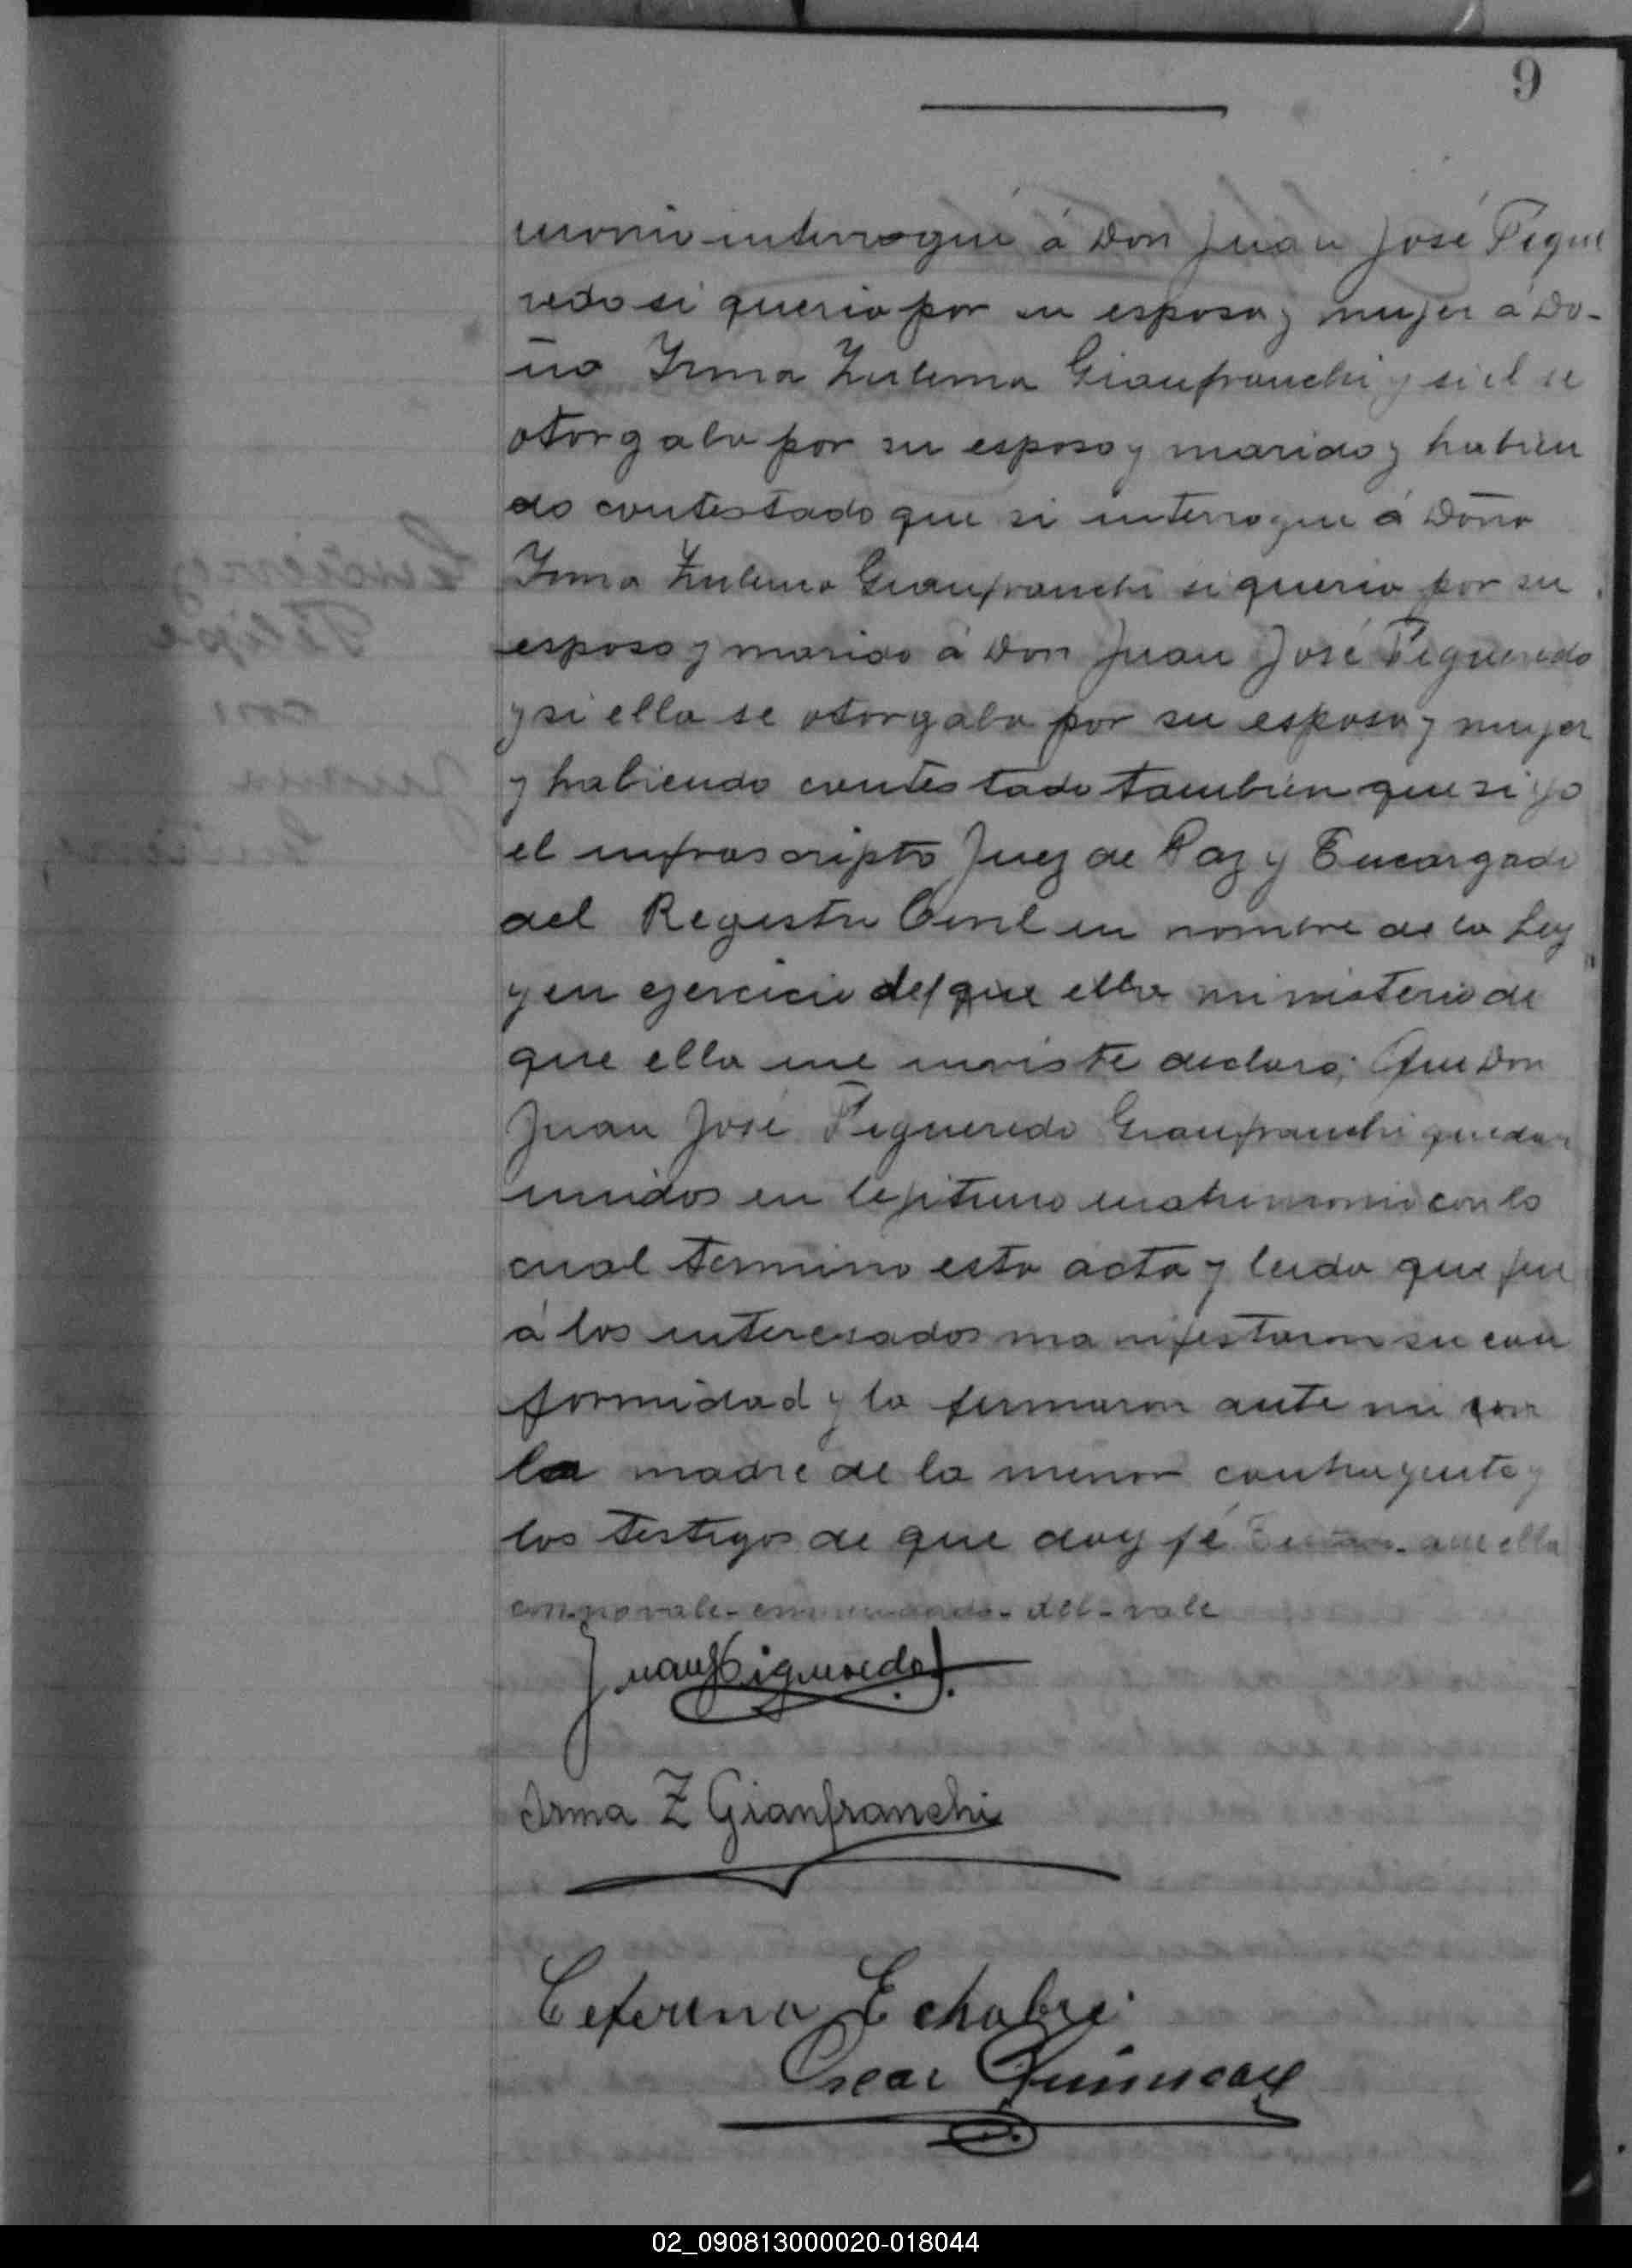 9
monio interrogué á Don Juan José Figue
redo si queria por su esposa y mujer á Do-
ña Irma Zulema Gianfranchi y si él se
otorgaba por su esposo y marido y habien
do contestado que si interrogue á Doña
Irma Zulema Gianfranchi si queria por su
esposo y marido á Don Juan José Figueredo
y si ella se otorgaba por su esposa y mujer
y habiendo contestado tambien que si yo
el infrascripto Juez de Paz y Encargado
del Registro Civil en nombre de la Ley
y en ejercicio del que ella ministerio de
que ella me inviste declaro: Que Don
Juan José Figueredo Gianfranchi quedan
unidos en lejitimo matrimonio con lo
cual termino esta acta y leida que fue
á los interesados manifestaron su con
formidad y la firmaron ante mi con
la madre de la menor contrayente y
los testigos de que doy fé que ella
no vale - enmendado - del - vale
Juan J Figueredo
Irma Z Gianfranchi
Ceferina Echabre
Oscar
02_090813000020-018044